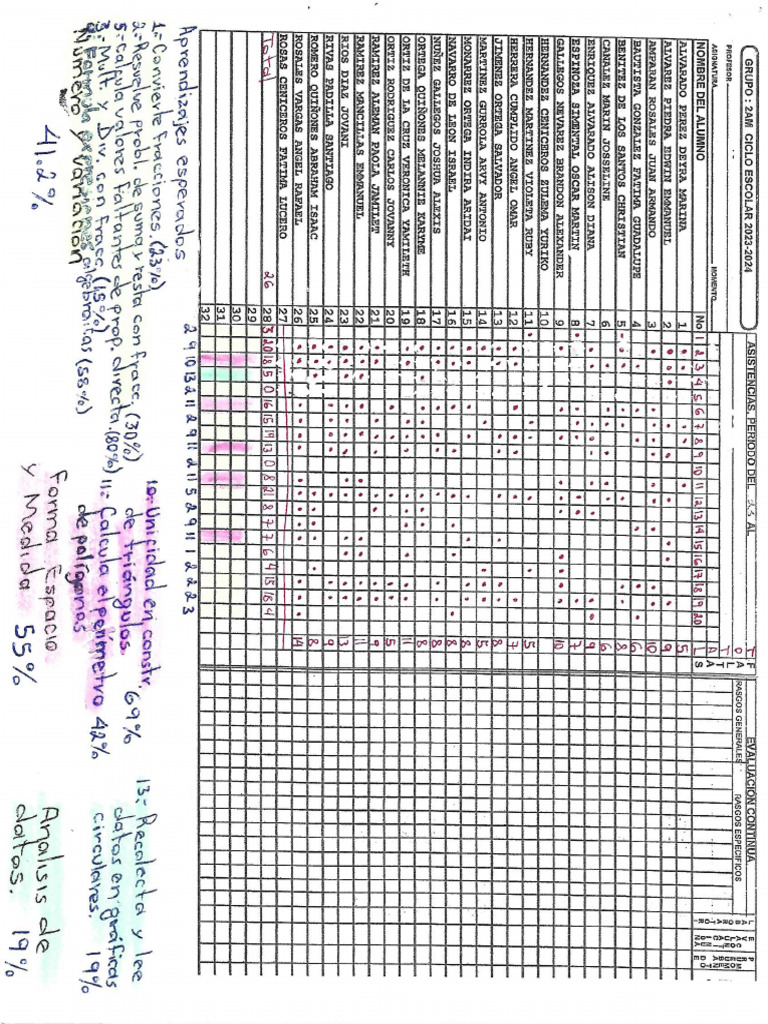 GRUPO : 2AM CICLO ESCOLAR 2023-2024
ASISTENCIAS. PERIODO DEL 23 AL
EVALUACIÓN CONTINUA
PROFESOR:
RASGOS GENERALES
RASGOS ESPECIFICOS
ASIGNATURA MOMENTO
NOMBRE DEL ALUMNO No 1 2 3 4 5 6 7 8 9 10 11 12 13 14 15 16 17 18 19 20
TOTAL
FALTAS
ALVARADO PEREZ DEYRA MARINA 1 5
ALVAREZ PIEDRA EDWIN EMMANUEL 2 9
AMPARAN ROSALES JUAN ARMANDO 3 10
BAUTISTA GONZALEZ FATIMA GUADALUPE 4 6
BENITEZ DE LOS SANTOS CHRISTIAN 5 8
CANALEZ MARIN JOSSELINE 6 6
ENRIQUEZ ALVARADO ALISON DIANA 7 9
ESPINOZA SIMENTAL OSCAR MARTIN 8 7
GALLEGOS NEVAREZ BRANDON ALEXANDER 9 10
HERNANDEZ CENICEROS ZULEMA YURIKO 10
HERNANDEZ MARTINEZ VIOLETA RUBY 11 5
HERRERA CUMPLIDO ANGEL OMAR 12 7
JIMENEZ ORTEGA SALVADOR 13 8
MARTINEZ GURROLA ARVY ANTONIO 14 5
MONARREZ ORTEGA INDIRA ARIDAI 15 8
NAVARRO DE LEON ISRAEL 16 8
NUÑEZ GALLEGOS JOSHUA ALEXIS 17 8
ORTEGA QUIÑONES MELANNIE KARYME 18 8
ORTIZ DE LA CRUZ VERONICA YAMILETH 19 11
ORTIZ RODRIGUEZ CARLOS JOVANNY 20 5
RAMIREZ ALEMAN PAOLA JAMILET 21 9
RAMIREZ MANCILLAS EMMANUEL 22 11
RIOS DIAZ JOVANI 23 13
RIVAS PADILLA SANTIAGO 24 9
ROMERO QUIÑONES ABRAHAM ISAAC 25 8
ROSALES VARGAS ANGEL RAFAEL 26 14
ROSAS CENICEROS FATIMA LUCERO 27
Total 26 28 3 20 18 5 0 16 15 19 13 0 8 21 8 7 7 6 4 15 18 4
29
30
31
32
2 9 10 13 2 11 2 9 11 2 11 5 2 9 11 1 2 2 2 3
Aprendizajes esperados
1.- Convierte fracciones. (23%)
2.- Resuelve probl. de suma y resta con fracc. (30%)
5.- Calcula valores faltantes de prop. directa. (80%)
3.- Mult. y Div. con fracc (15%)
9.- Formula expresiones algebraicas (58%)
Número y variación
41.2%
10.- Unicidad en constr. de triángulos. 69%
11.- Calcula el perímetro de polígonos 42%
Forma Espacio
y Medida 55%
13.- Recolecta y lee
datos en gráficas
circulares. 19%
Analisis de
datos. 19%